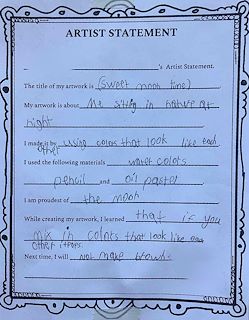 ARTIST STATEMENT
's Artist Statement.
The title of my artwork is (sweet moon time)
My artwork is about me sitting in nature at
night
I made it by using colors that look like each
other
I used the following materials water colors
pencil and oil pastel
I am proudest of the moon
While creating my artwork, I learned that if you
mix in colors that look like each
other
Next time, I will not make browns